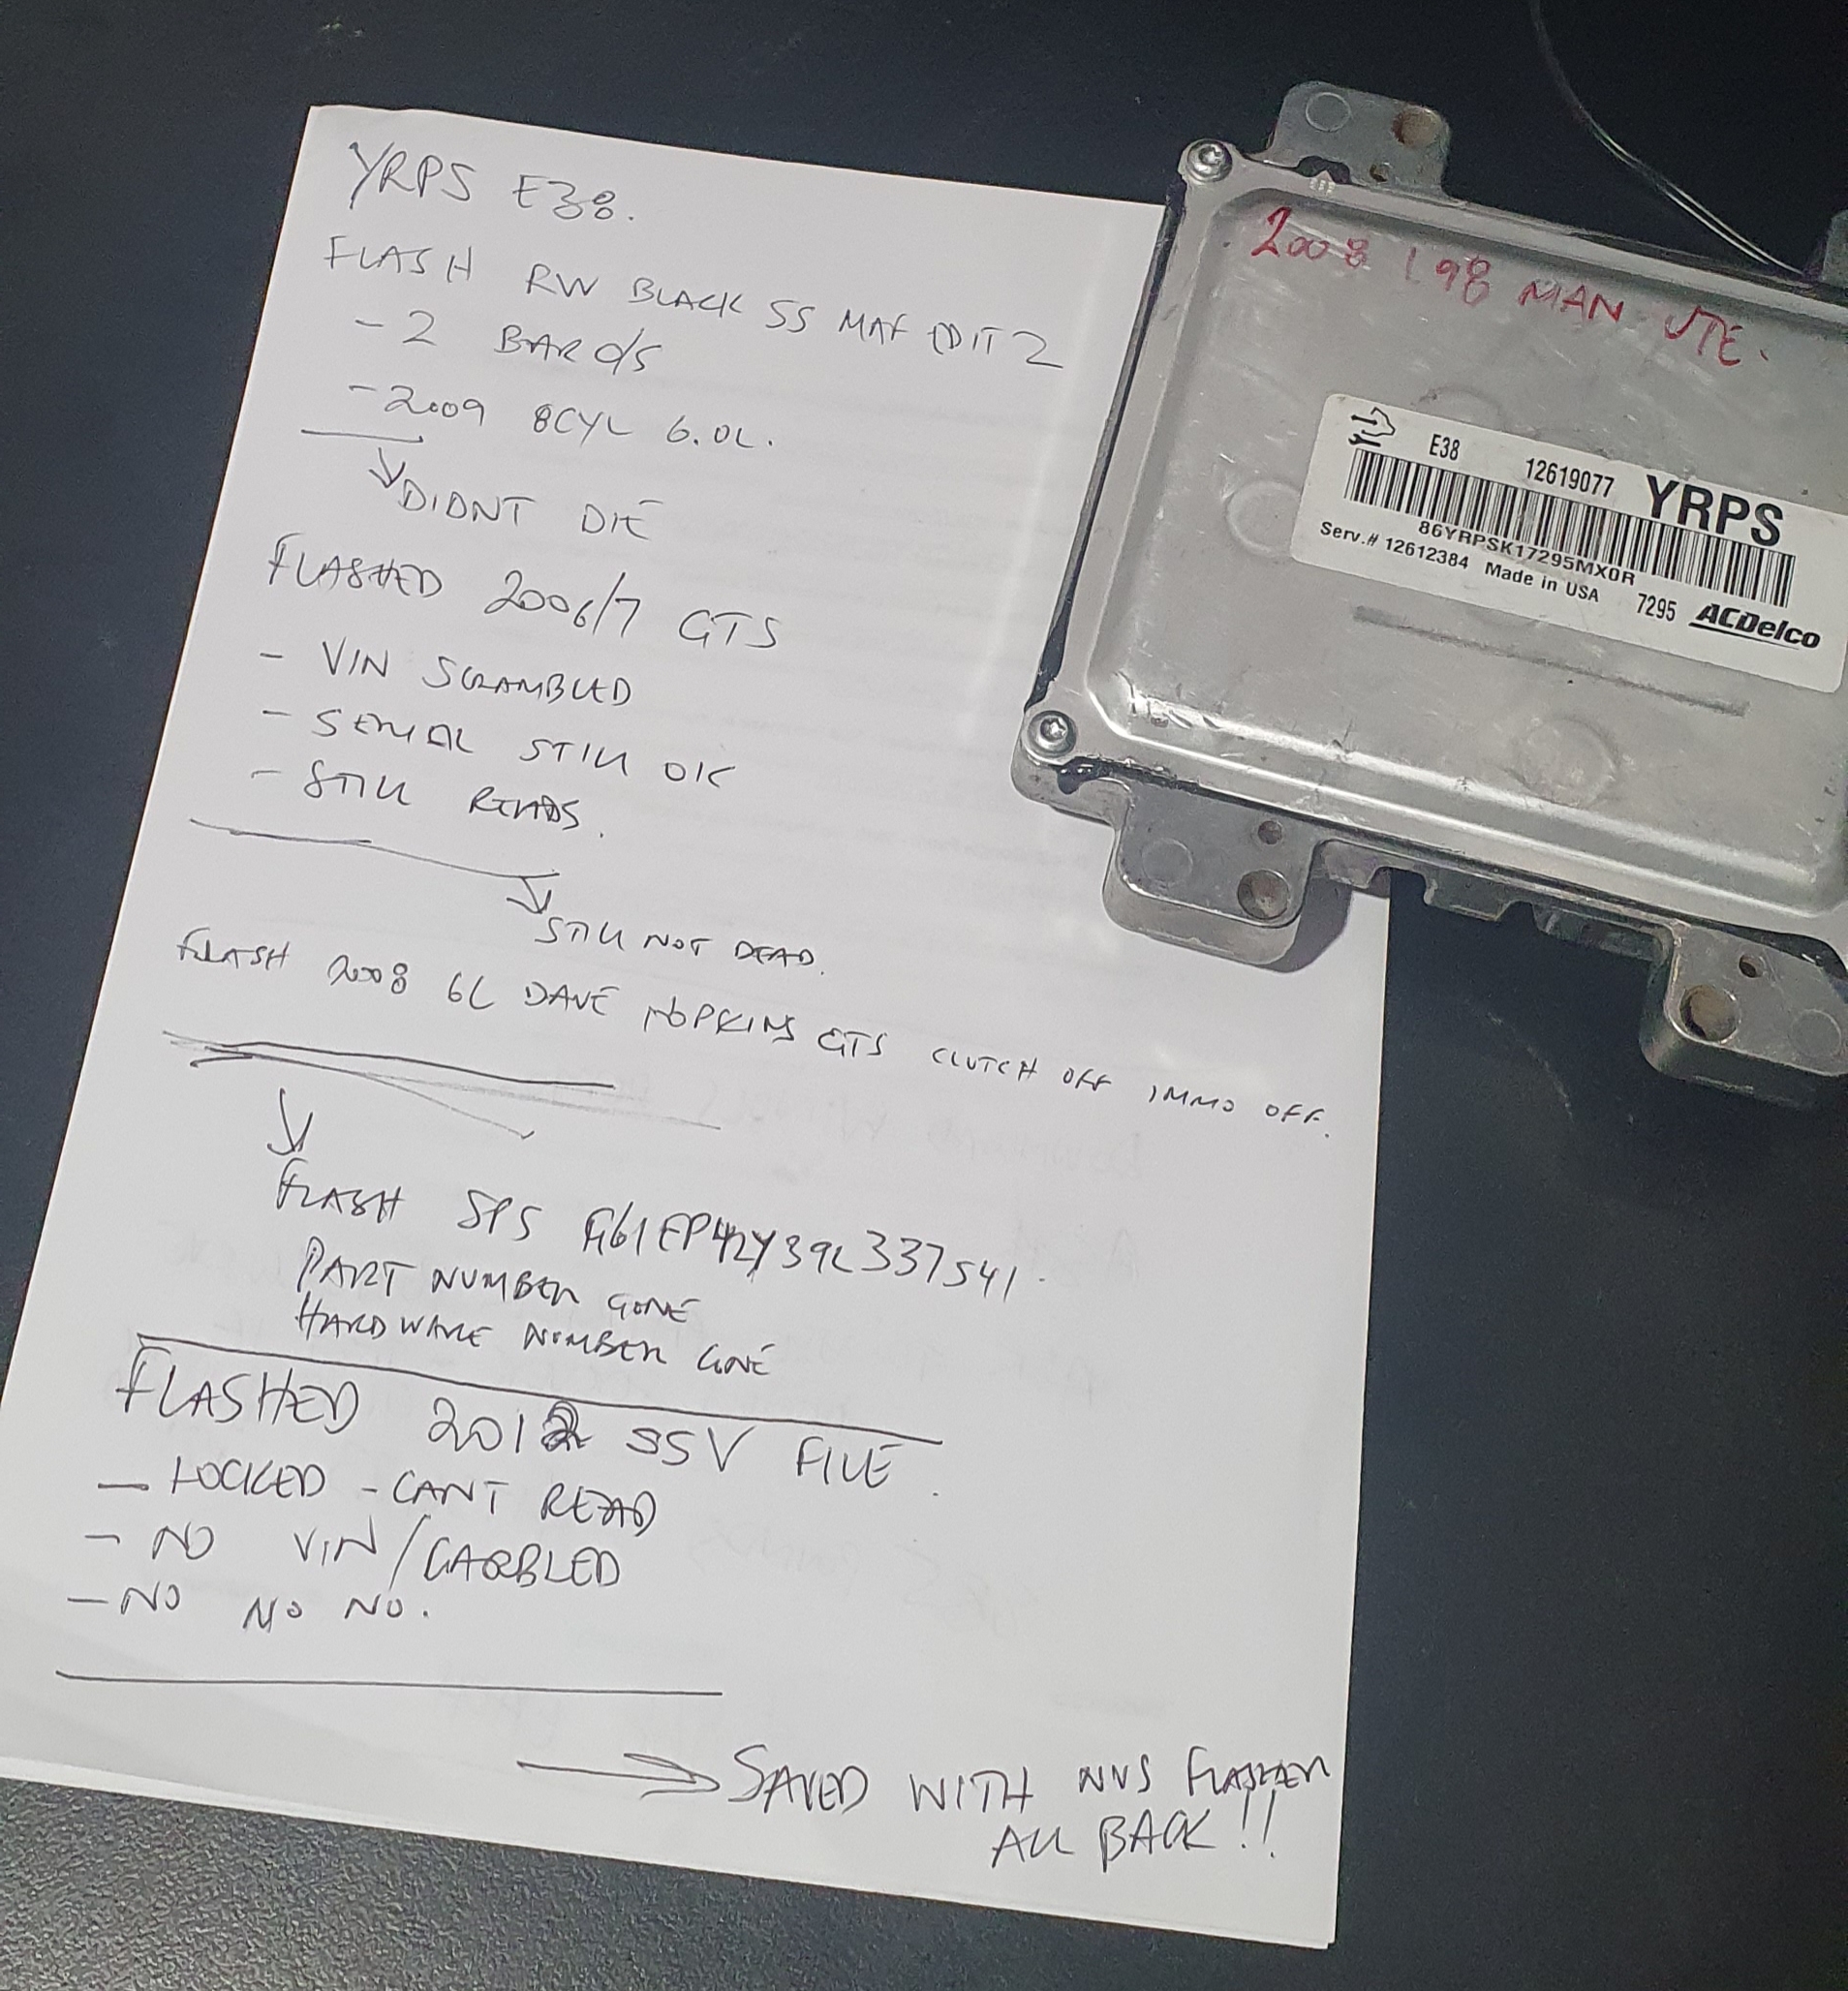 YRPS E38.
FLASH RW BLACK SS MAF EDIT 2
- 2 BAR O/S
- 2009 8CYL 6.0L.
DIDNT DIE
FLASHED 2006/7 GTS
- VIN SCRAMBLED
- SERIAL STILL OK
- STILL READS.
STILL NOT DEAD.
FLASH 2008 6L DAVE HOPKINS GTS CLUTCH OFF IMMO OFF.
FLASH SPS 39L337541.
PART NUMBER GONE
HARDWARE NUMBER GONE
FLASHED 2012 SSV FILE.
- LOCKED - CANT READ
- NO VIN/GARBLED
- NO NO NO.
SAVED WITH NVS FLASHER
ALL BACK!!
2008 L98 MAN UTE.
E38 12619077 YRPS
86YRPSK17295MX0R
Serv.# 12612384 Made in USA 7295 ACDelco